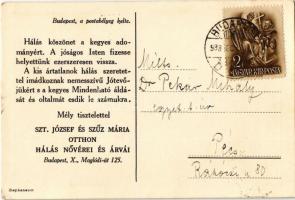 Budapest, a postabélyeg kelte.
Hálás köszönet a kegyes ado-
mányért. A jóságos Isten fizesse
helyettünk ezerszeresen vissza.
A kis ártatlanok hálás szeretet-
tel imádkoznak nemesszívű Jótevő-
jükért s a kegyes Mindenható áldá-
sát és oltalmát esdik le számukra.
Mély tisztelettel
SZT. JÓZSEF ÉS SZŰZ MÁRIA
OTTHON
HÁLÁS NŐVÉREI ÉS ÁRVÁI
Budapest, X., Maglódi-út 125.
Stephaneum
BUDAPEST
2
MAGYAR KIR. POSTA
Mélts.
Dr Pekár Mihály
egyet. t. úr
Pécs
Rákóczi u. 80